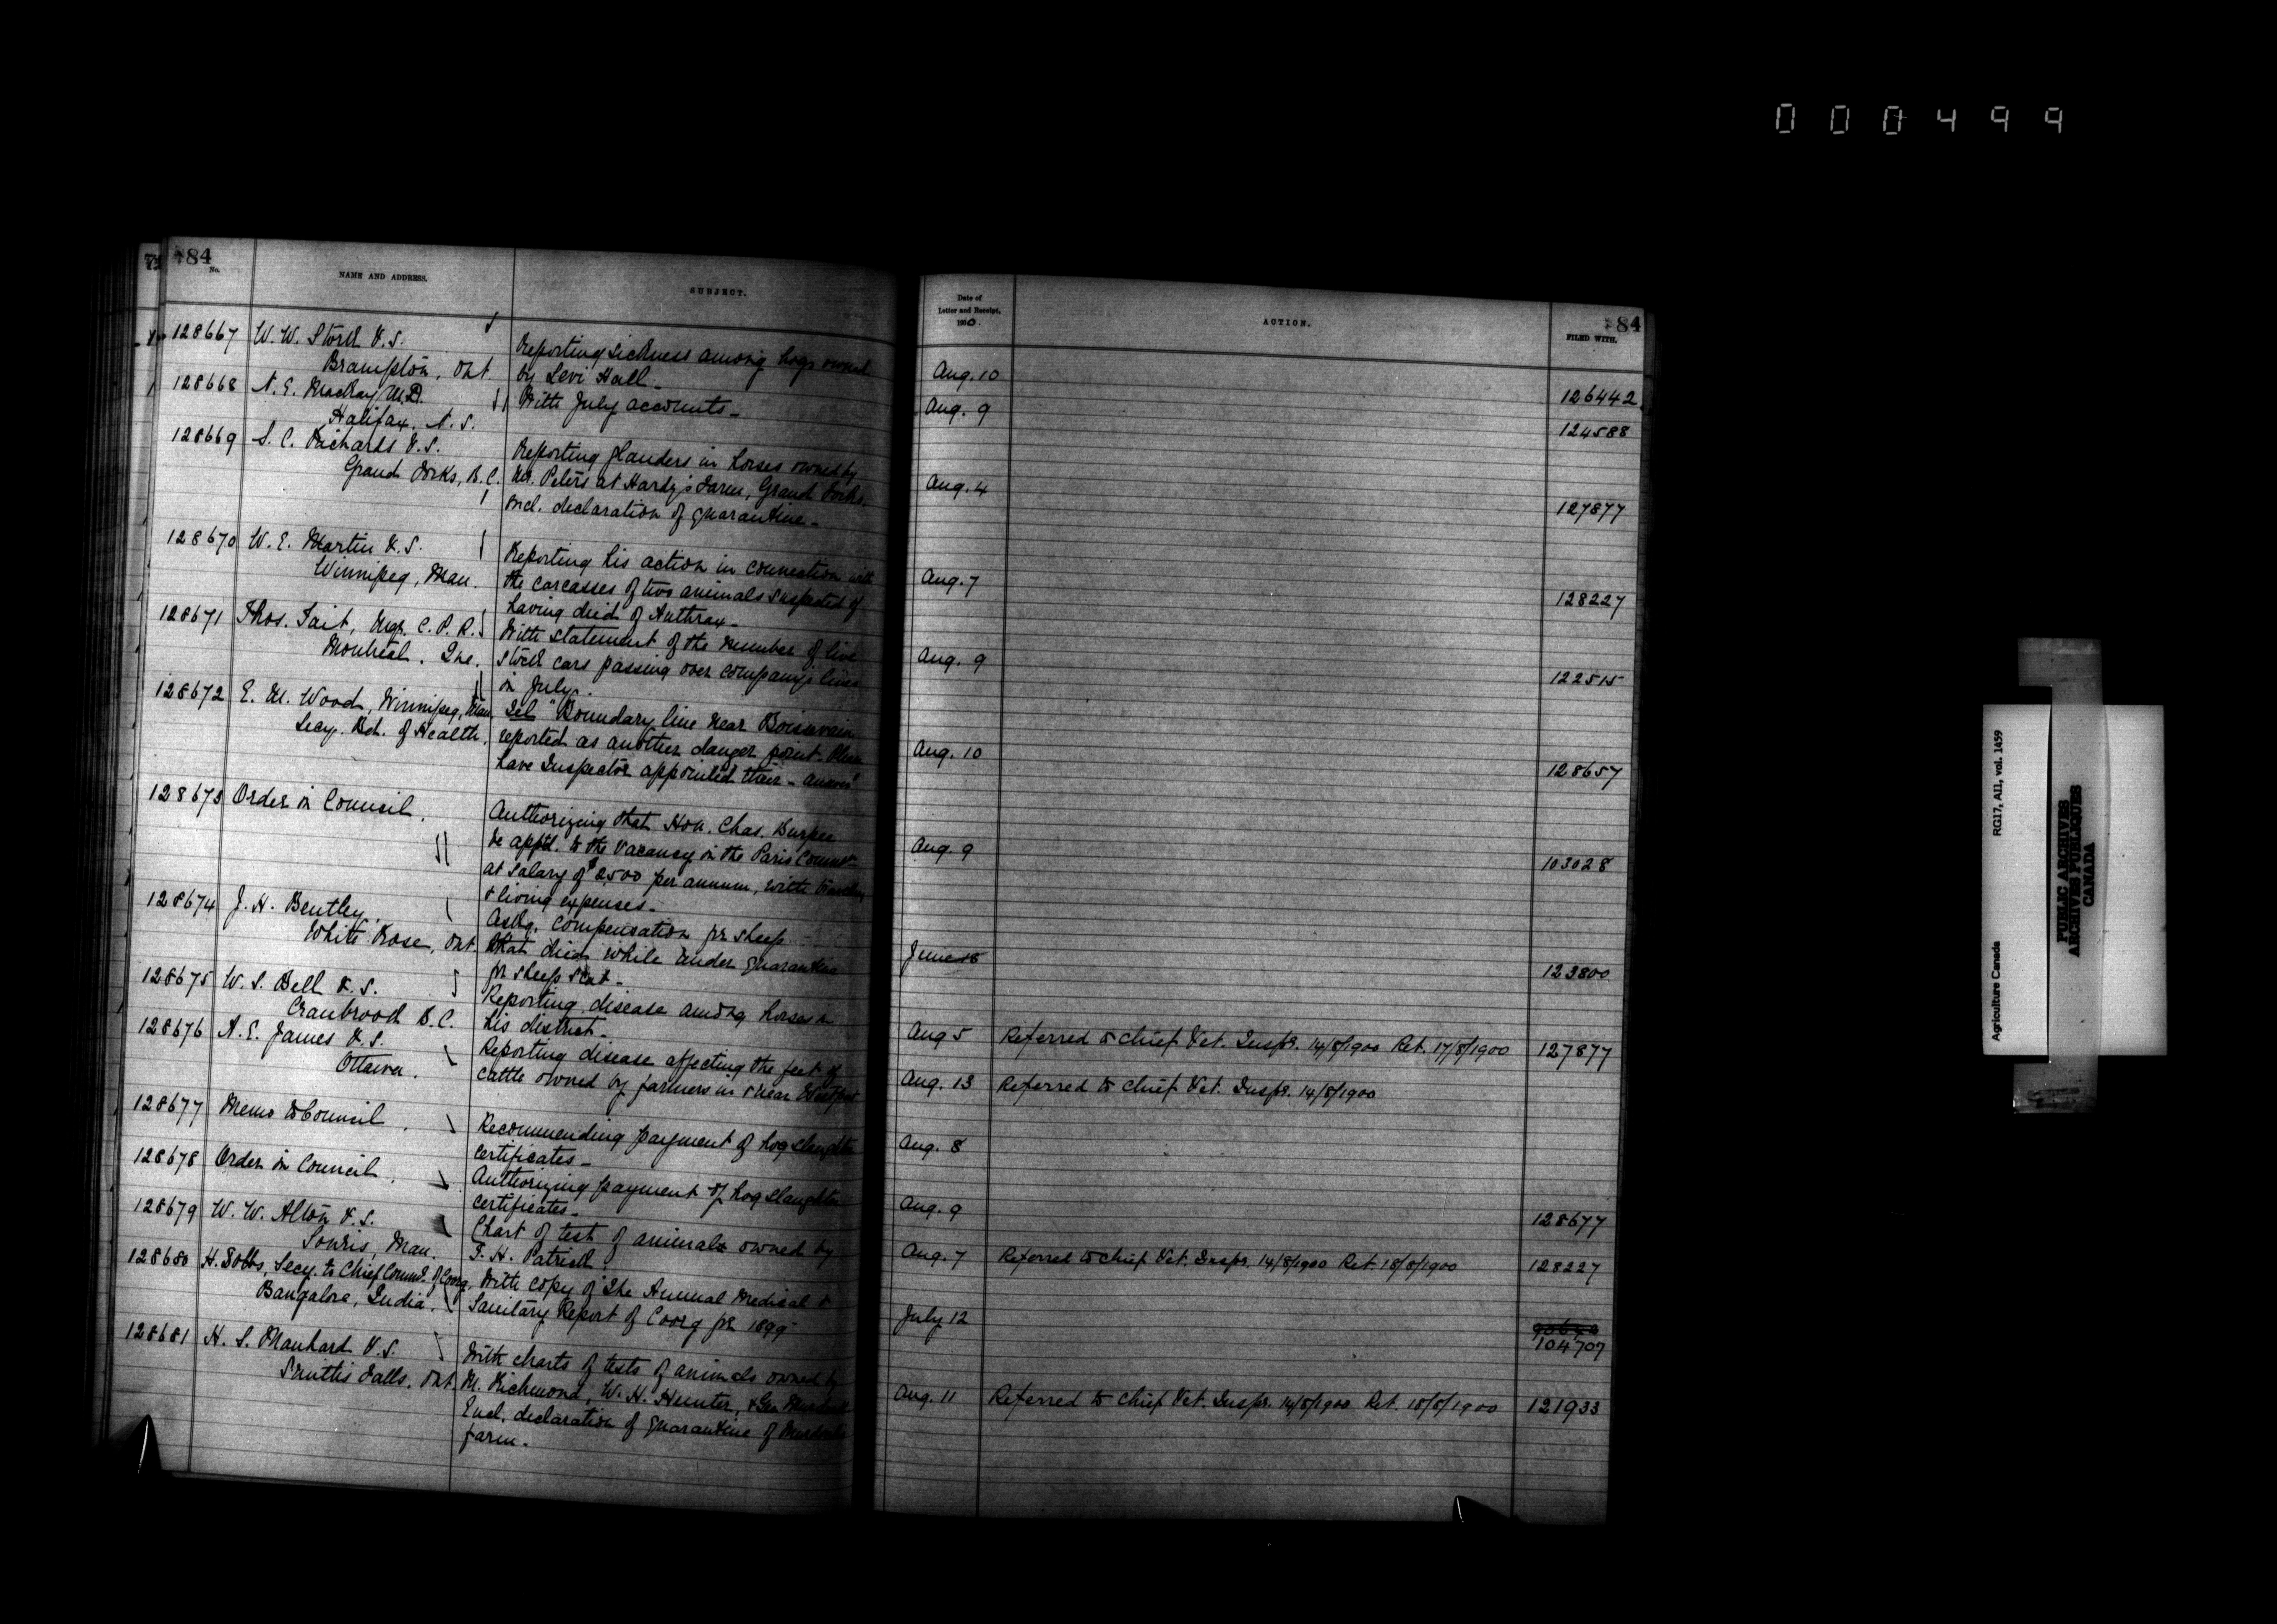 000499
84
No.
NAME AND ADDRESS.
SUBJECT.
128667 W. W. Stork V.S. Reporting sickness among hogs owned
Brampton, Ont. by Levi Hall -
128668 N. E. MacKay M.D. With July accounts -
Halifax, N. S.
128669 S. C. Richards V.S. Reporting glanders in horses owned by
Grand Forks, B.C. Mr. Peters at Hardy's Farm, Grand Forks.
Encl. declaration of quarantine -
128670 W. E. Martin V.S. Reporting his action in connection with
Winnipeg, Man. the carcasses of two animals suspected of
having died of Anthrax -
128671 Thos. Tait, Mgr. C. P. R. With statement of the number of live
Montreal, Que. stock cars passing over company's lines
in July.
128672 E. M. Wood, Winnipeg, Man. Tel "Boundary line near Boissevain
Secy. Bd. of Health. reported as another danger point. Please
have Inspector appointed their - answer"
128673 Order in Council. Authorizing that Hon. Chas. Burpee
be apptd. to the vacancy in the Paris Comm
at salary of $2500 per annum, with travelling
& living expenses -
128674 J. H. Bentley. Askg. compensation for sheep
White Rose, Ont. that died while under quarantine
for sheep scab -
128675 W. S. Bell V.S. Reporting disease among horses in
Cranbrook B.C. his district -
128676 A. E. James V.S. Reporting disease affecting the feet of
Ottawa. cattle owned by farmers in & near Westport
128677 Memo to Council. Recommending payment of hog slaughter
certificates -
128678 Order in Council. Authorizing payment of hog slaughter
certificates -
128679 W. W. Alton V.S. Chart of test of animals owned by
Souris, Man. F. H. Patrick
128680 H. Dobbs, Secy. to Chief Commr. of Coorg, With copy of The Annual Medical &
Bangalore, India. Sanitary Report of Coorg for 1899 -
128681 H. S. Manhard V.S. With charts of tests of animals owned by
Smiths Falls, Ont. M. Richmond, W. H. Hunter, & Geo Murdock
Encl. declaration of quarantine of Murdock's
farm.
Date of
Letter and Receipt,
1900.
ACTION.
84
FILED WITH.
Aug. 10 126442
Aug. 9 124588
Aug. 4 127877
Aug. 7 128227
Aug. 9 122515
Aug. 10 128657
Aug. 9 103028
June 18 123800
Aug 5 Referred to Chief Vet. Inspr. 14/8/1900 Ret. 17/8/1900 127877
Aug. 13 Referred to Chief Vet. Inspr. 14/8/1900
Aug. 8
Aug. 9 128677
Aug. 7 Referred to Chief Vet. Inspr. 14/8/1900 Ret. 18/8/1900 128227
July 12
104707
Aug. 11 Referred to Chief Vet. Inspr. 14/8/1900 Ret. 18/8/1900 121933
Agriculture Canada RG17, AII, vol. 1459
PUBLIC ARCHIVES
ARCHIVES PUBLIQUES
CANADA